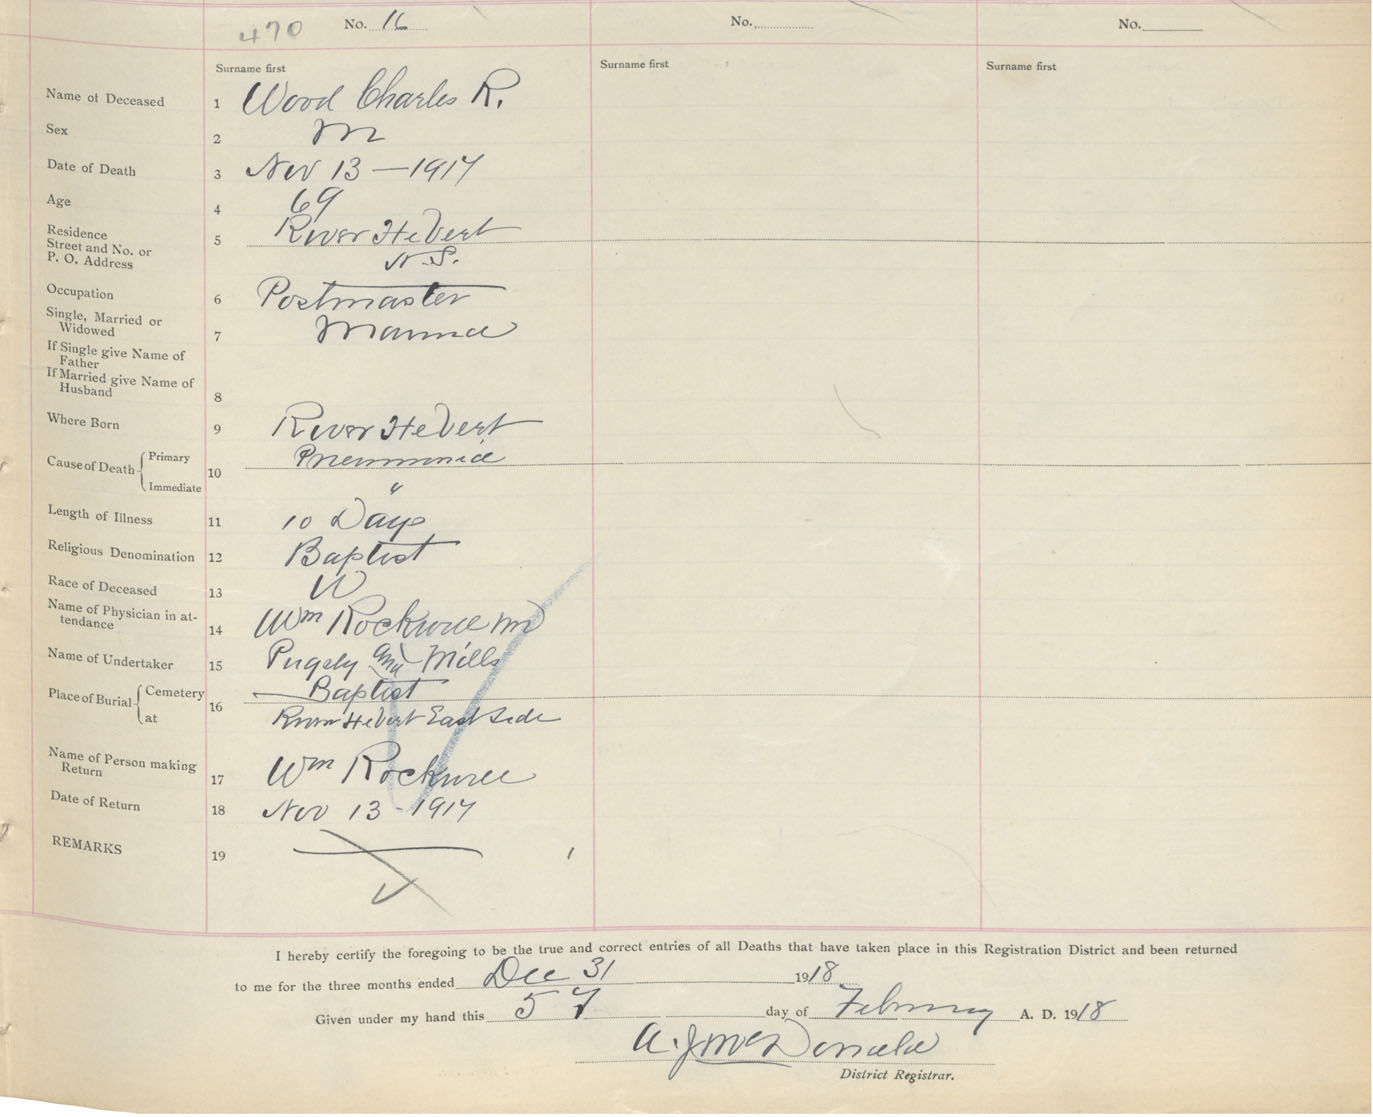 470 No. 16 No. No.
Surname first Surname first Surname first
Name of Deceased 1 Wood Charles R.
Sex 2 M
Date of Death 3 Nov 13 — 1917
Age 4 69
Residence
Street and No. or 5 River Hebert
P. O. Address N.S.
Occupation 6 Postmaster
Single, Married or
Widowed 7 Married
If Single give Name of
Father
If Married give Name of
Husband 8
Where Born 9 River Hebert
Cause of Death Primary 10 Pneumonia
Immediate "
Length of Illness 11 10 Days
Religious Denomination 12 Baptist
Race of Deceased 13 W
Name of Physician in at-
tendance 14 Wm Rockwell MD
Name of Undertaker 15 Pugsly and Mills
Place of Burial Cemetery 16 Baptist
at River Hebert East Side
Name of Person making
Return 17 Wm Rockwell
Date of Return 18 Nov 13 - 1917
REMARKS 19
I hereby certify the foregoing to be the true and correct entries of all Deaths that have taken place in this Registration District and been returned
to me for the three months ended Dec 31 1918
Given under my hand this 5 day of February A. D. 1918
A. J. McDonald
District Registrar.